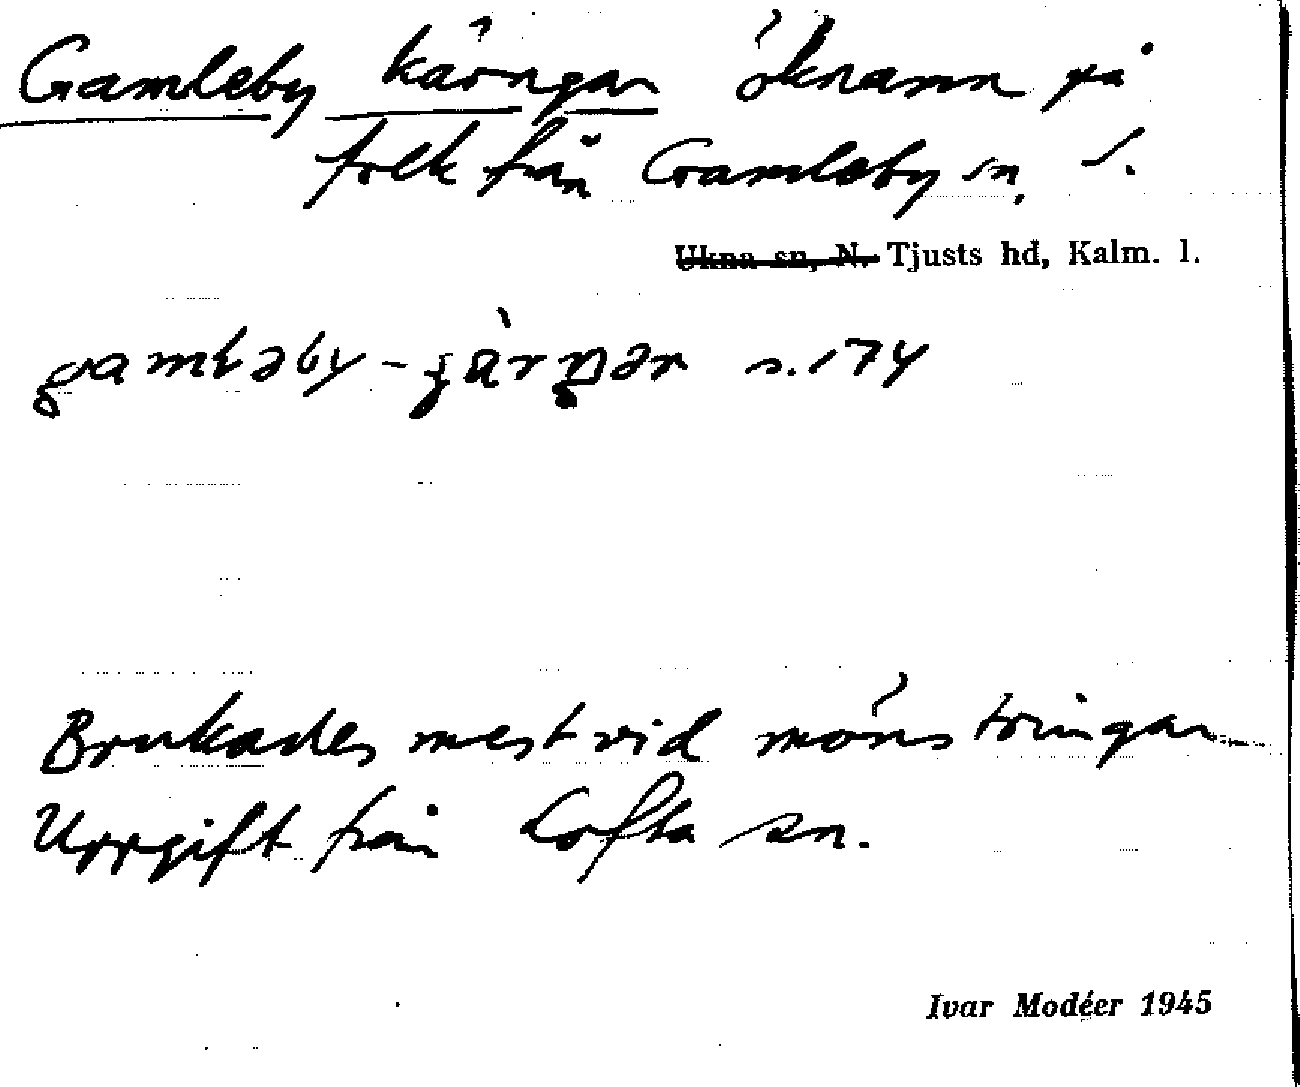 Gamleby käringar öknamn på
folk från Gamleby sn, S.
Ukna sn, N. Tjusts hd, Kalm. l.
s. 174
Brukades mest vid mönstringar
Uppgift från Lofta sn.
Ivar Modéer 1945